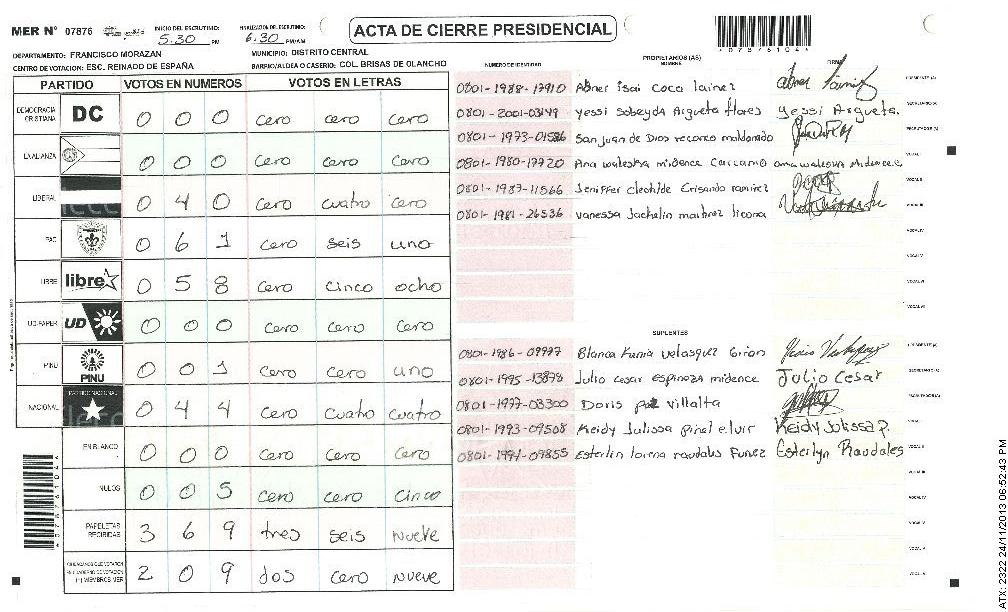 MER N° 07876 INICIO DEL ESCRUTINIO: 5:30 PM FINALIZACION DEL ESCRUTINIO: 6:30 PM/AM ACTA DE CIERRE PRESIDENCIAL
DEPARTAMENTO: FRANCISCO MORAZAN MUNICIPIO: DISTRITO CENTRAL
CENTRO DE VOTACION: ESC. REINADO DE ESPAÑA BARRIO/ALDEA O CASERIO: COL. BRISAS DE OLANCHO
PARTIDO VOTOS EN NUMEROS VOTOS EN LETRAS
DEMOCRACIA CRISTIANA DC 0 0 0 cero cero cero
LA ALIANZA 0 0 0 cero cero cero
LIBERAL 0 4 0 cero cuatro cero
PAC 0 6 1 cero seis uno
LIBRE libre 0 5 8 cero cinco ocho
UD-FAPER UD 0 0 0 cero cero cero
PINU PINU 0 0 1 cero cero uno
NACIONAL 0 4 4 cero cuatro cuatro
EN BLANCO 0 0 0 cero cero cero
NULOS 0 0 5 cero cero cinco
PAPELETAS RECIBIDAS 3 6 9 tres seis nueve
CIUDADANOS QUE VOTARON EN CUADERNO DE VOTACION (+) MIEMBROS MER 2 0 9 dos cero nueve
NUMERO DE IDENTIDAD PROPIETARIOS (AS) NOMBRE FIRMA
0801-1988-17910 Abner isai coca lainez PRESIDENTE (A)
0801-2001-03149 yessi sobeyda Argueta flores yessi Argueta. SECRETARIO (A)
0801-1973-01586 San juan de Dios reconco maldonado ESCRUTADOR (A)
0801-1980-17720 Ana waleska midence Carcamo VOCAL I
0801-1987-11566 Jeniffer cleotilde Crisanto ramirez VOCAL II
0801-1981-26536 vanessa Jackelin martinez licona VOCAL III
VOCAL IV
VOCAL V
VOCAL VI
VOCAL VII
SUPLENTES
0801-1986-09977 Blanca Kenia velasquez Giron PRESIDENTE (A)
0801-1995-13878 Julio cesar espinoza midence Julio Cesar SECRETARIO (A)
0801-1977-03300 Doris villalta ESCRUTADOR (A)
0801-1993-09508 Keidy Julissa pinel elvir Keidy Julissa P. VOCAL I
0801-1991-09855 Esterlin lorena raudales Funez Esterlyn Raudales VOCAL II
VOCAL III
VOCAL IV
VOCAL V
VOCAL VI
VOCAL VII
ATX: 2322 24/11/2013 06:52:43 PM